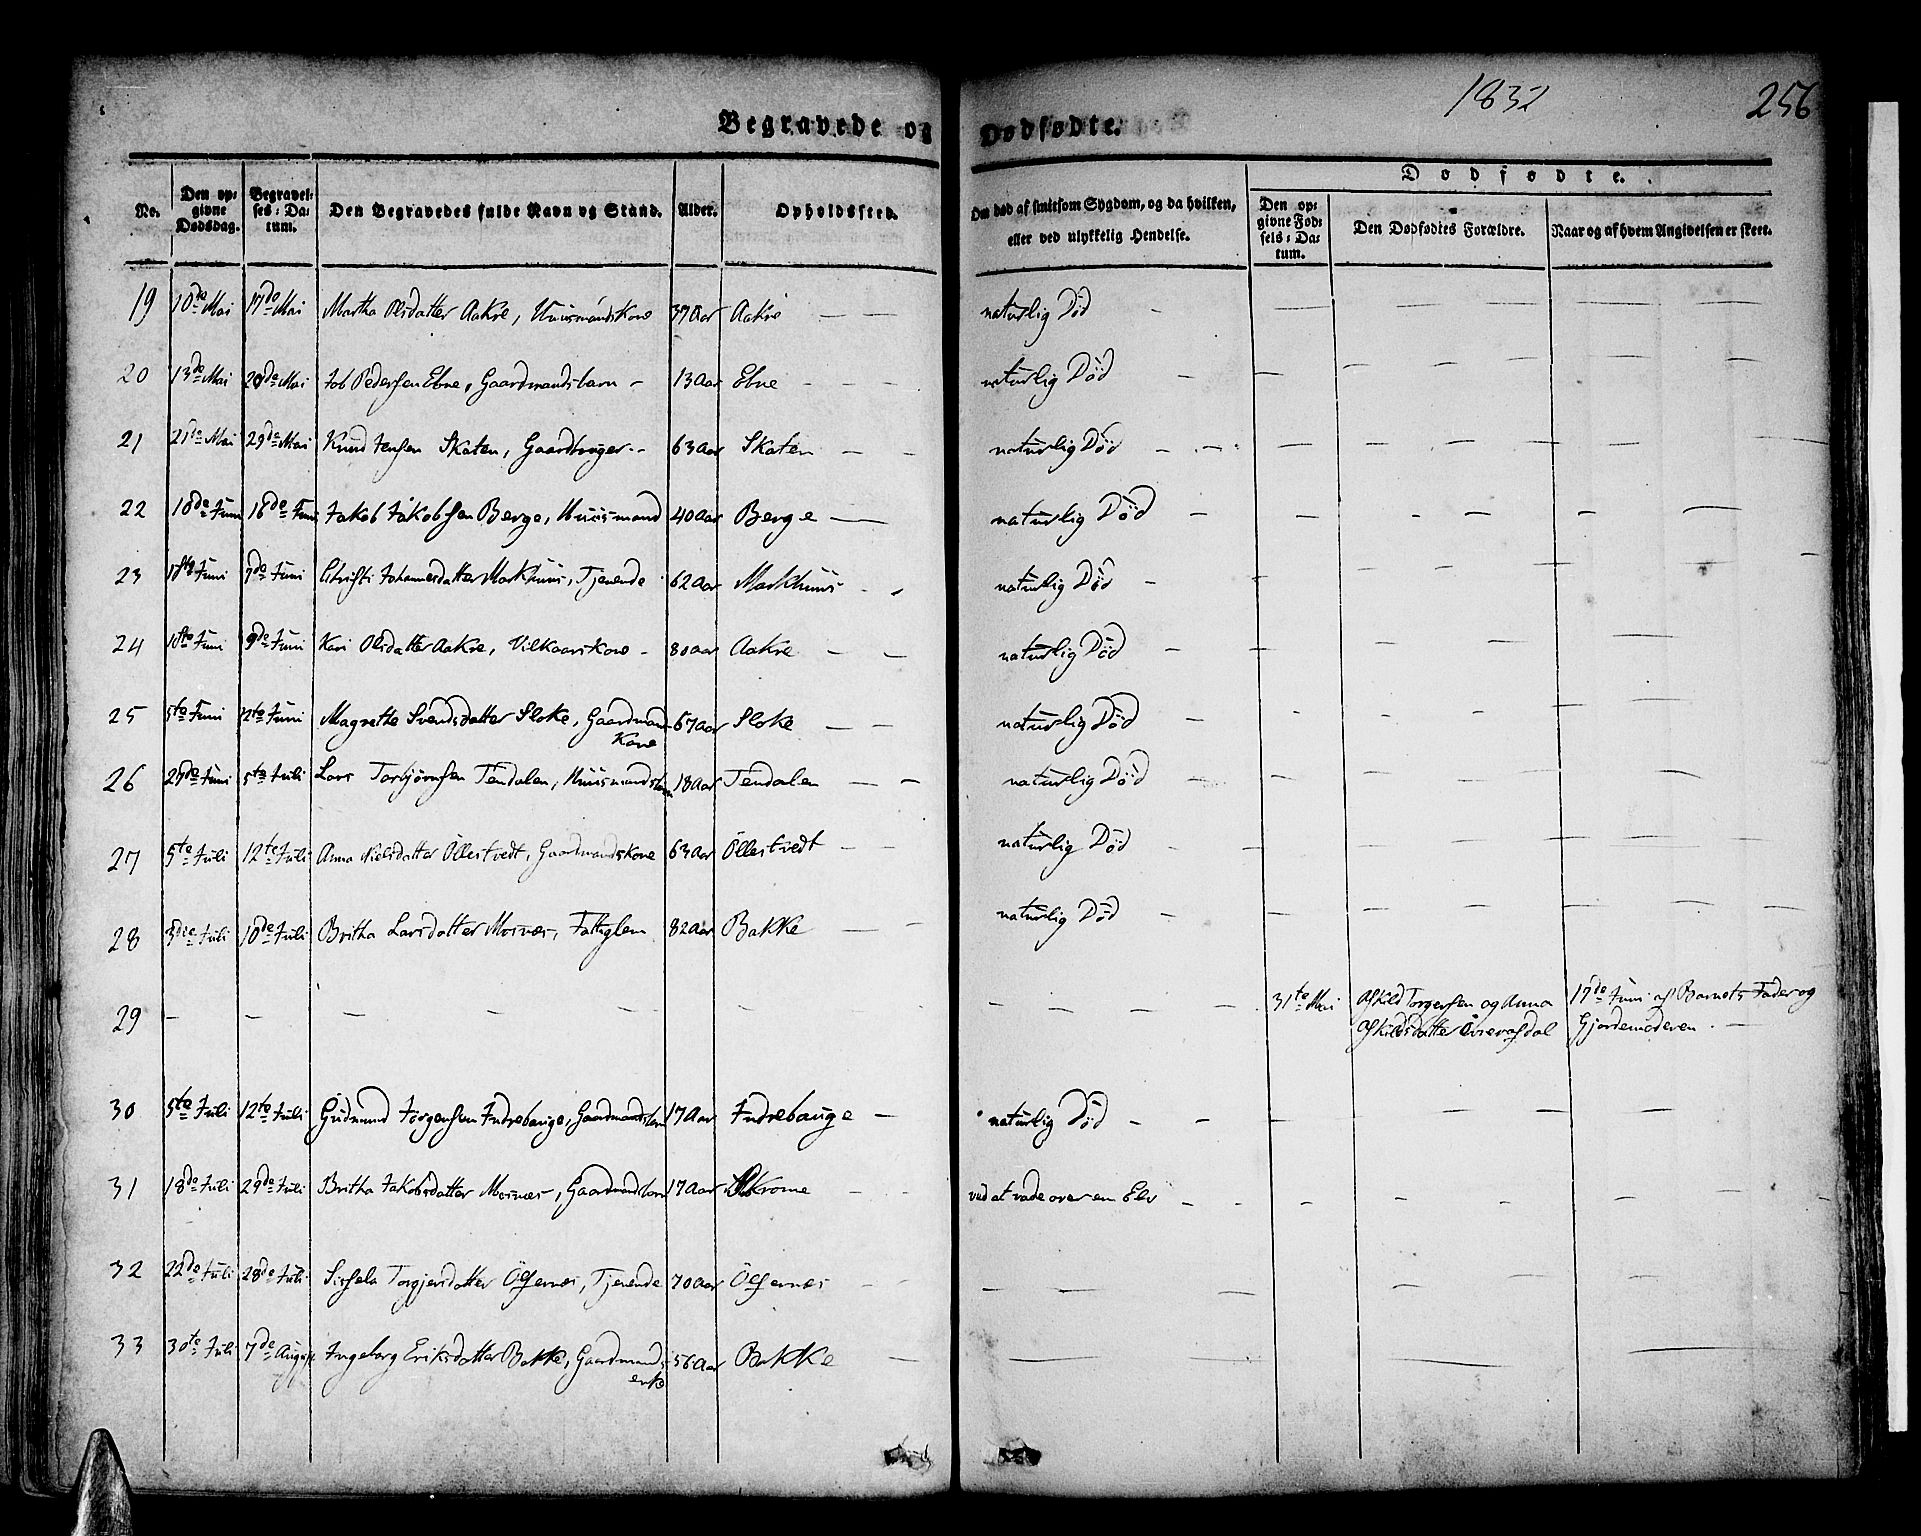 1832
256
Begravede og Dødfødte.
No.
Den op-
givne
Dødsdag.
Begravel-
ses-Da-
tum.
Den Begravedes fulde Navn og Stand.
Alder.
Opholdssted.
Om død af smitsom Sygdom, og da hvilken,
eller ved ulykkelig Hendelse.
Dødfødte.
Den op-
givne Fød-
sels-Da-
tum.
Den Dødfødtes Forældre.
Naar og af hvem Angivelsen er skeet.
19 10de Mai 17de Mai Martha Olsdatter Aakre, Huusmandskone 37 Aar Aakre — — naturlig Død —
20 13de Mai 20de Mai Job Pedersen Ebne, Gaardmandsbarn - 13 Aar Ebne - - - naturlig Død —
21 21de Mai 29de Mai Knud Jensen Skaten, Gaardbruger -- 63 Aar Skaten — - naturlig Død —
22 18de Juni 18de Juni Jakob Jakobsen Berge, Huusmand 40 Aar Berge — naturlig Død —
23 1ste Juni 7de Juni Christi Johannesdatter Markhuus, Tjenende 62 Aar Markhuus - - naturlig Død —
24 1ste Juni 9de Juni Kari Olsdatter Aakre, Vilkaarskone - 80 Aar Aakre — — naturlig Død —
25 5te Juni 12te Juni Magrethe Svendsdatter Sloke, Gaardmands
Kone 67 Aar Sloke — — naturlig Død —
26 27de Juni 5te Juli Lars Torbjørnsen Tendalen, Huusmandsbarn 18 Aar Tendalen — — naturlig Død —
27 5te Juli 12te Juli Anna Nielsdatter Öllestvedt, Gaardmandskone 63 Aar Öllestvedt — — naturlig Død —
28 3die Juli 10de Juli Britha Larsdatter Mosnæs, Fattiglem 82 Aar Bakke — - naturlig Død —
29 — — — — — — — 31te Mai Askild Torgersen og Anna 17de Juni af Barnets Fader og
Askildsdatter Gjordemoderen. —
30 5te Juli 12te Juli Gudmund Jørgensen Indrebauge, Gaardmandsbarn 17 Aar Indrebauge — naturlig Død —
31 18de Juli 29de Juli Britha Jakobsdatter Mosnæs, Gaardmandsbarn 17 Aar — — ved at vade over en Elv —
32 22de Juli 28de Juli Sissela Torgjersdatter Ölfernæs, Tjenende 70 Aar Ölfernæs — — —
33 30te Juli 7de August Ingeborg Eriksdatter Bakke, Gaardmands
enke 56 Aar Bakke — —